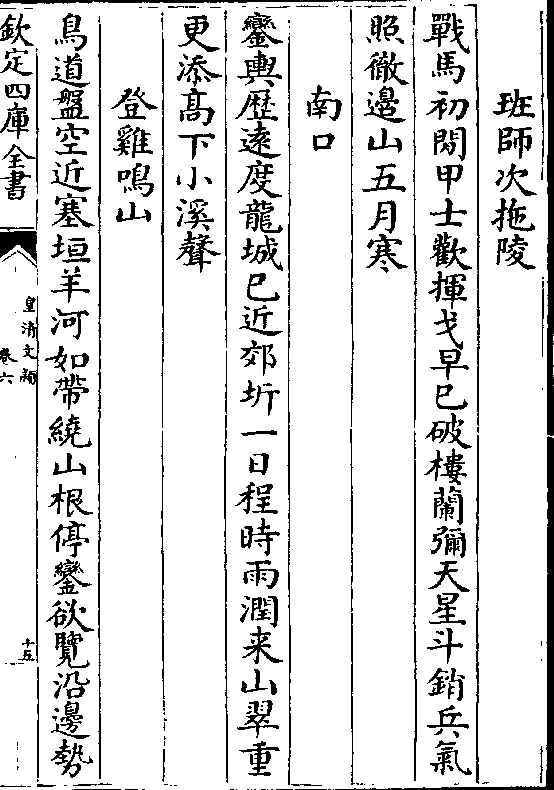 班師次拖陵
戰馬初閑甲士歡揮戈早已破樓蘭彌天星斗銷兵氣
照徹邊山五月寒
南口
鑾輿歴逺度龍城已近郊圻一日程時雨潤来山翠重
更添髙下小溪聲
登雞鳴山
鳥道盤空近塞垣羊河如帶繞山根停鑾欲覽沿邊勢
欽定四庫全書
皇清文穎
卷六
十五